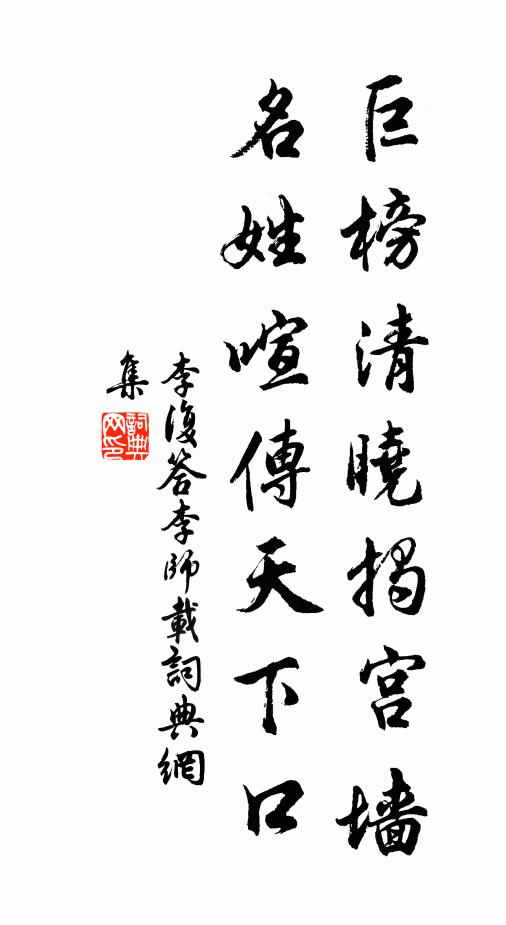 巨榜清曉揭宫墙
名姓喧傳天下口
李復答李師載詞典網
集
詞典
网印